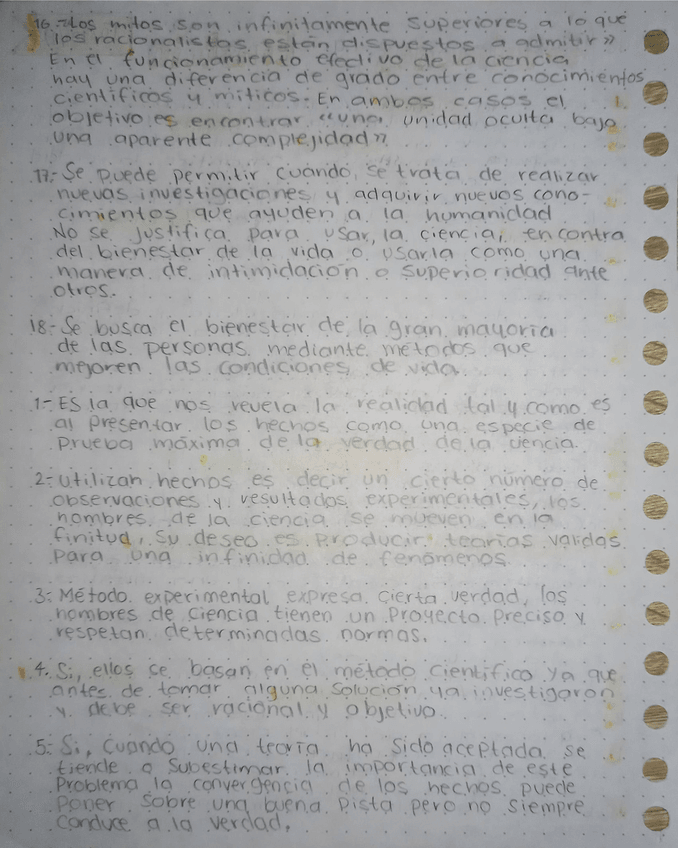 16.- «Los mitos son infinitamente superiores a lo que
los racionalistas están dispuestos a admitir»
En el funcionamiento efectivo de la ciencia
hay una diferencia de grado entre conocimientos
científicos y míticos. En ambos casos el
objetivo es encontrar «una unidad oculta bajo
una aparente complejidad»
17.- Se puede permitir cuando se trata de realizar
nuevas investigaciones y adquirir nuevos cono-
cimientos que ayuden a la humanidad
No se justifica para usar la ciencia en contra
del bienestar de la vida o usarla como una
manera de intimidacion o superioridad ante
otros.
18.- Se busca el bienestar de la gran mayoria
de las personas mediante métodos que
mejoren las condiciones de vida
1.- ES la que nos revela la realidad tal y como es
al presentar los hechos como una especie de
prueba máxima de la verdad de la ciencia.
2.- utilizan hechos es decir un cierto número de
observaciones y resultados experimentales, los
hombres de la ciencia se mueven en la
finitud, su deseo es producir teorías validas
para una infinidad de fenómenos
3.- Método experimental expresa cierta verdad, los
hombres de ciencia tienen un proyecto preciso y
respetan determinadas normas.
4. Si, ellos se basan en el método científico ya que
antes de tomar alguna solución ya investigaron
y debe ser racional y objetivo
5.- Si, cuando una teoría ha sido aceptada se
tiende a subestimar la importancia de este
problema la convergencia de los hechos puede
poner sobre una buena pista pero no siempre
conduce a la verdad.